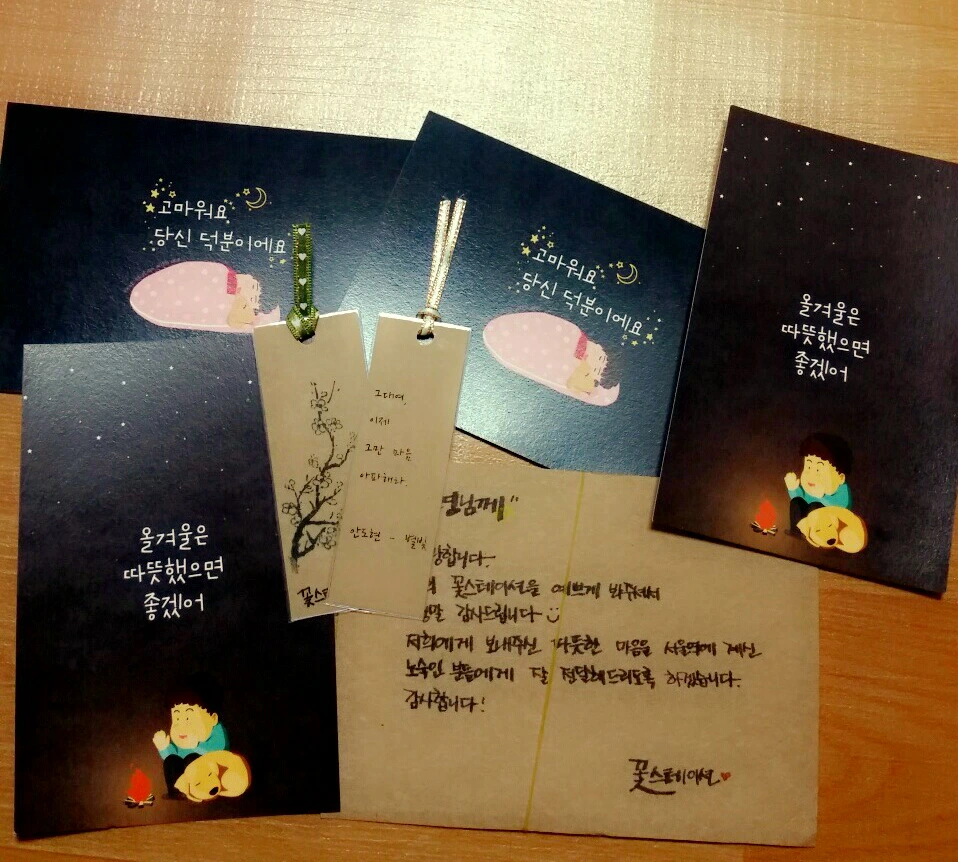 고마워요
당신 덕분이에요
고마워요
당신 덕분이에요
올겨울은
따뜻했으면
좋겠어
올겨울은
따뜻했으면
좋겠어
꽃스테
그대여,
이제
그만 마음
아파해라.
안도현 - 별빛
님께"
합니다.
꽃스테이션을 예쁘게 봐주셔서
감사드립니다
저희에게 보내주신 따뜻한 마음을 서울역에 계신
노숙인 분들에게 잘 전달해드리도록 하겠습니다.
감사합니다!
꽃스테이션